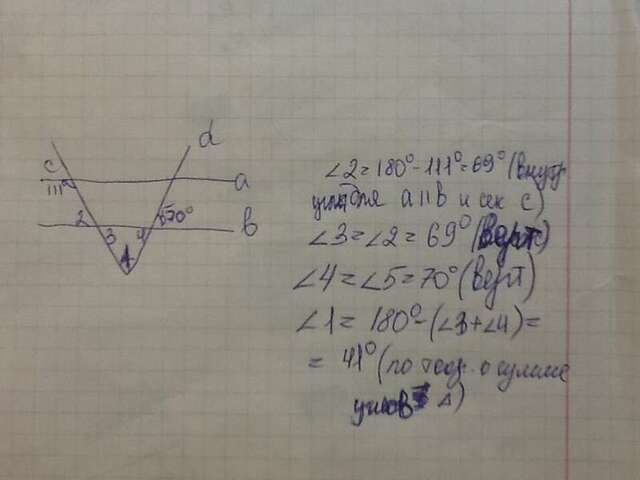 d
c
a
111°
2
5 70°
b
3
4
1
∠2 = 180° - 111° = 69° (внутр
углы для a || b и сек c)
∠3 = ∠2 = 69° (верт)
∠4 = ∠5 = 70° (верт)
∠1 = 180° - (∠3 + ∠4) =
= 41° (по теор. о сумме
углов Δ)